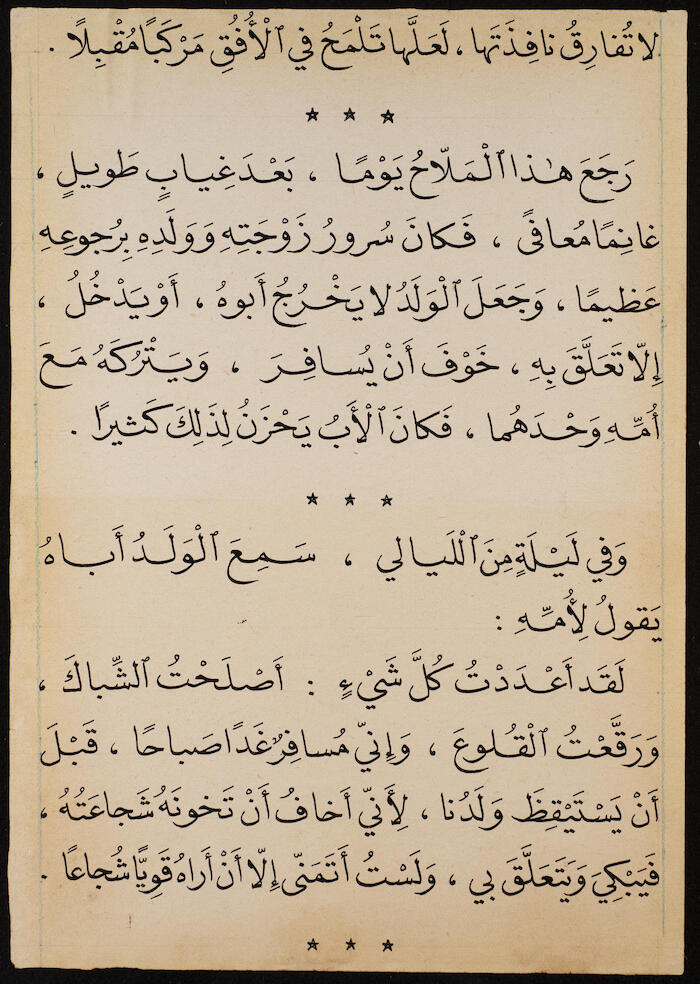 لا تُفارِقُ نافِذَتَها ، لَعَلَّها تَلْمَحُ في ٱلْأُفُقِ مَرْكَبًا مُقْبِلًا .
* * *
رَجَعَ هٰذا ٱلْمَلّاحُ يَوْمًا ، بَعْدَ غِيابٍ طَويلٍ ،
غانِمًا مُعافًى ، فَكانَ سُرورُ زَوْجَتِهِ وَوَلَدِهِ بِرُجوعِهِ
عَظيمًا ، وَجَعَلَ ٱلْوَلَدُ لا يَخْرُجُ أَبوهُ ، أَوْ يَدْخُلُ ،
إِلّا تَعَلَّقَ بِهِ ، خَوْفَ أَنْ يُسافِرَ ، وَيَتْرُكَهُ مَعَ
أُمِّهِ وَحْدَهُما ، فَكانَ ٱلْأَبُ يَحْزَنُ لِذَلِكَ كَثيرًا .
* * *
وَفي لَيْلَةٍ مِنَ ٱللَّيالي ، سَمِعَ ٱلْوَلَدُ أَباهُ
يَقولُ لِأُمِّهِ :
لَقَد أَعْدَدْتُ كُلَّ شَيْءٍ : أَصْلَحْتُ ٱلشِّباكَ ،
وَرَقَّعْتُ ٱلْقُلوعَ ، وَإِنّي مُسافِرٌ غَدًا صَباحًا ، قَبْلَ
أَنْ يَسْتَيْقِظَ وَلَدُنا ، لِأَنّي أَخافُ أَنْ تَخونَهُ شَجاعَتُهُ ،
فَيَبْكِيَ وَيَتَعَلَّقَ بي ، وَلَسْتُ أَتَمَنّى إِلّا أَنْ أَراهُ قَوِيًّا شُجاعًا .
* * *